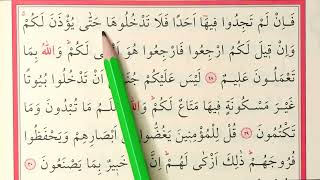 فَاِنْ لَمْ تَجِدُوا فٖيهَا اَحَدًا فَلَا تَدْخُلُوهَا حَتّٰى يُؤْذَنَ لَكُمْ
وَاِنْ قٖيلَ لَكُمُ ارْجِعُوا فَارْجِعُوا هُوَ اَزْكٰى لَكُمْ وَاللّٰهُ بِمَا
تَعْمَلُونَ عَلٖيمٌ ﴿٢٨﴾ لَيْسَ عَلَيْكُمْ جُنَاحٌ اَنْ تَدْخُلُوا بُيُوتًا
غَيْرَ مَسْكُونَةٍ فٖيهَا مَتَاعٌ لَكُمْ وَاللّٰهُ يَعْلَمُ مَا تُبْدُونَ وَمَا
تَكْتُمُونَ ﴿٢٩﴾ قُلْ لِلْمُؤْمِنٖينَ يَغُضُّوا مِنْ اَبْصَارِهِمْ وَيَحْفَظُوا
فُرُوجَهُمْ ذٰلِكَ اَزْكٰى لَهُمْ اِنَّ اللّٰهَ خَبٖيرٌ بِمَا يَصْنَعُونَ ﴿٣٠﴾